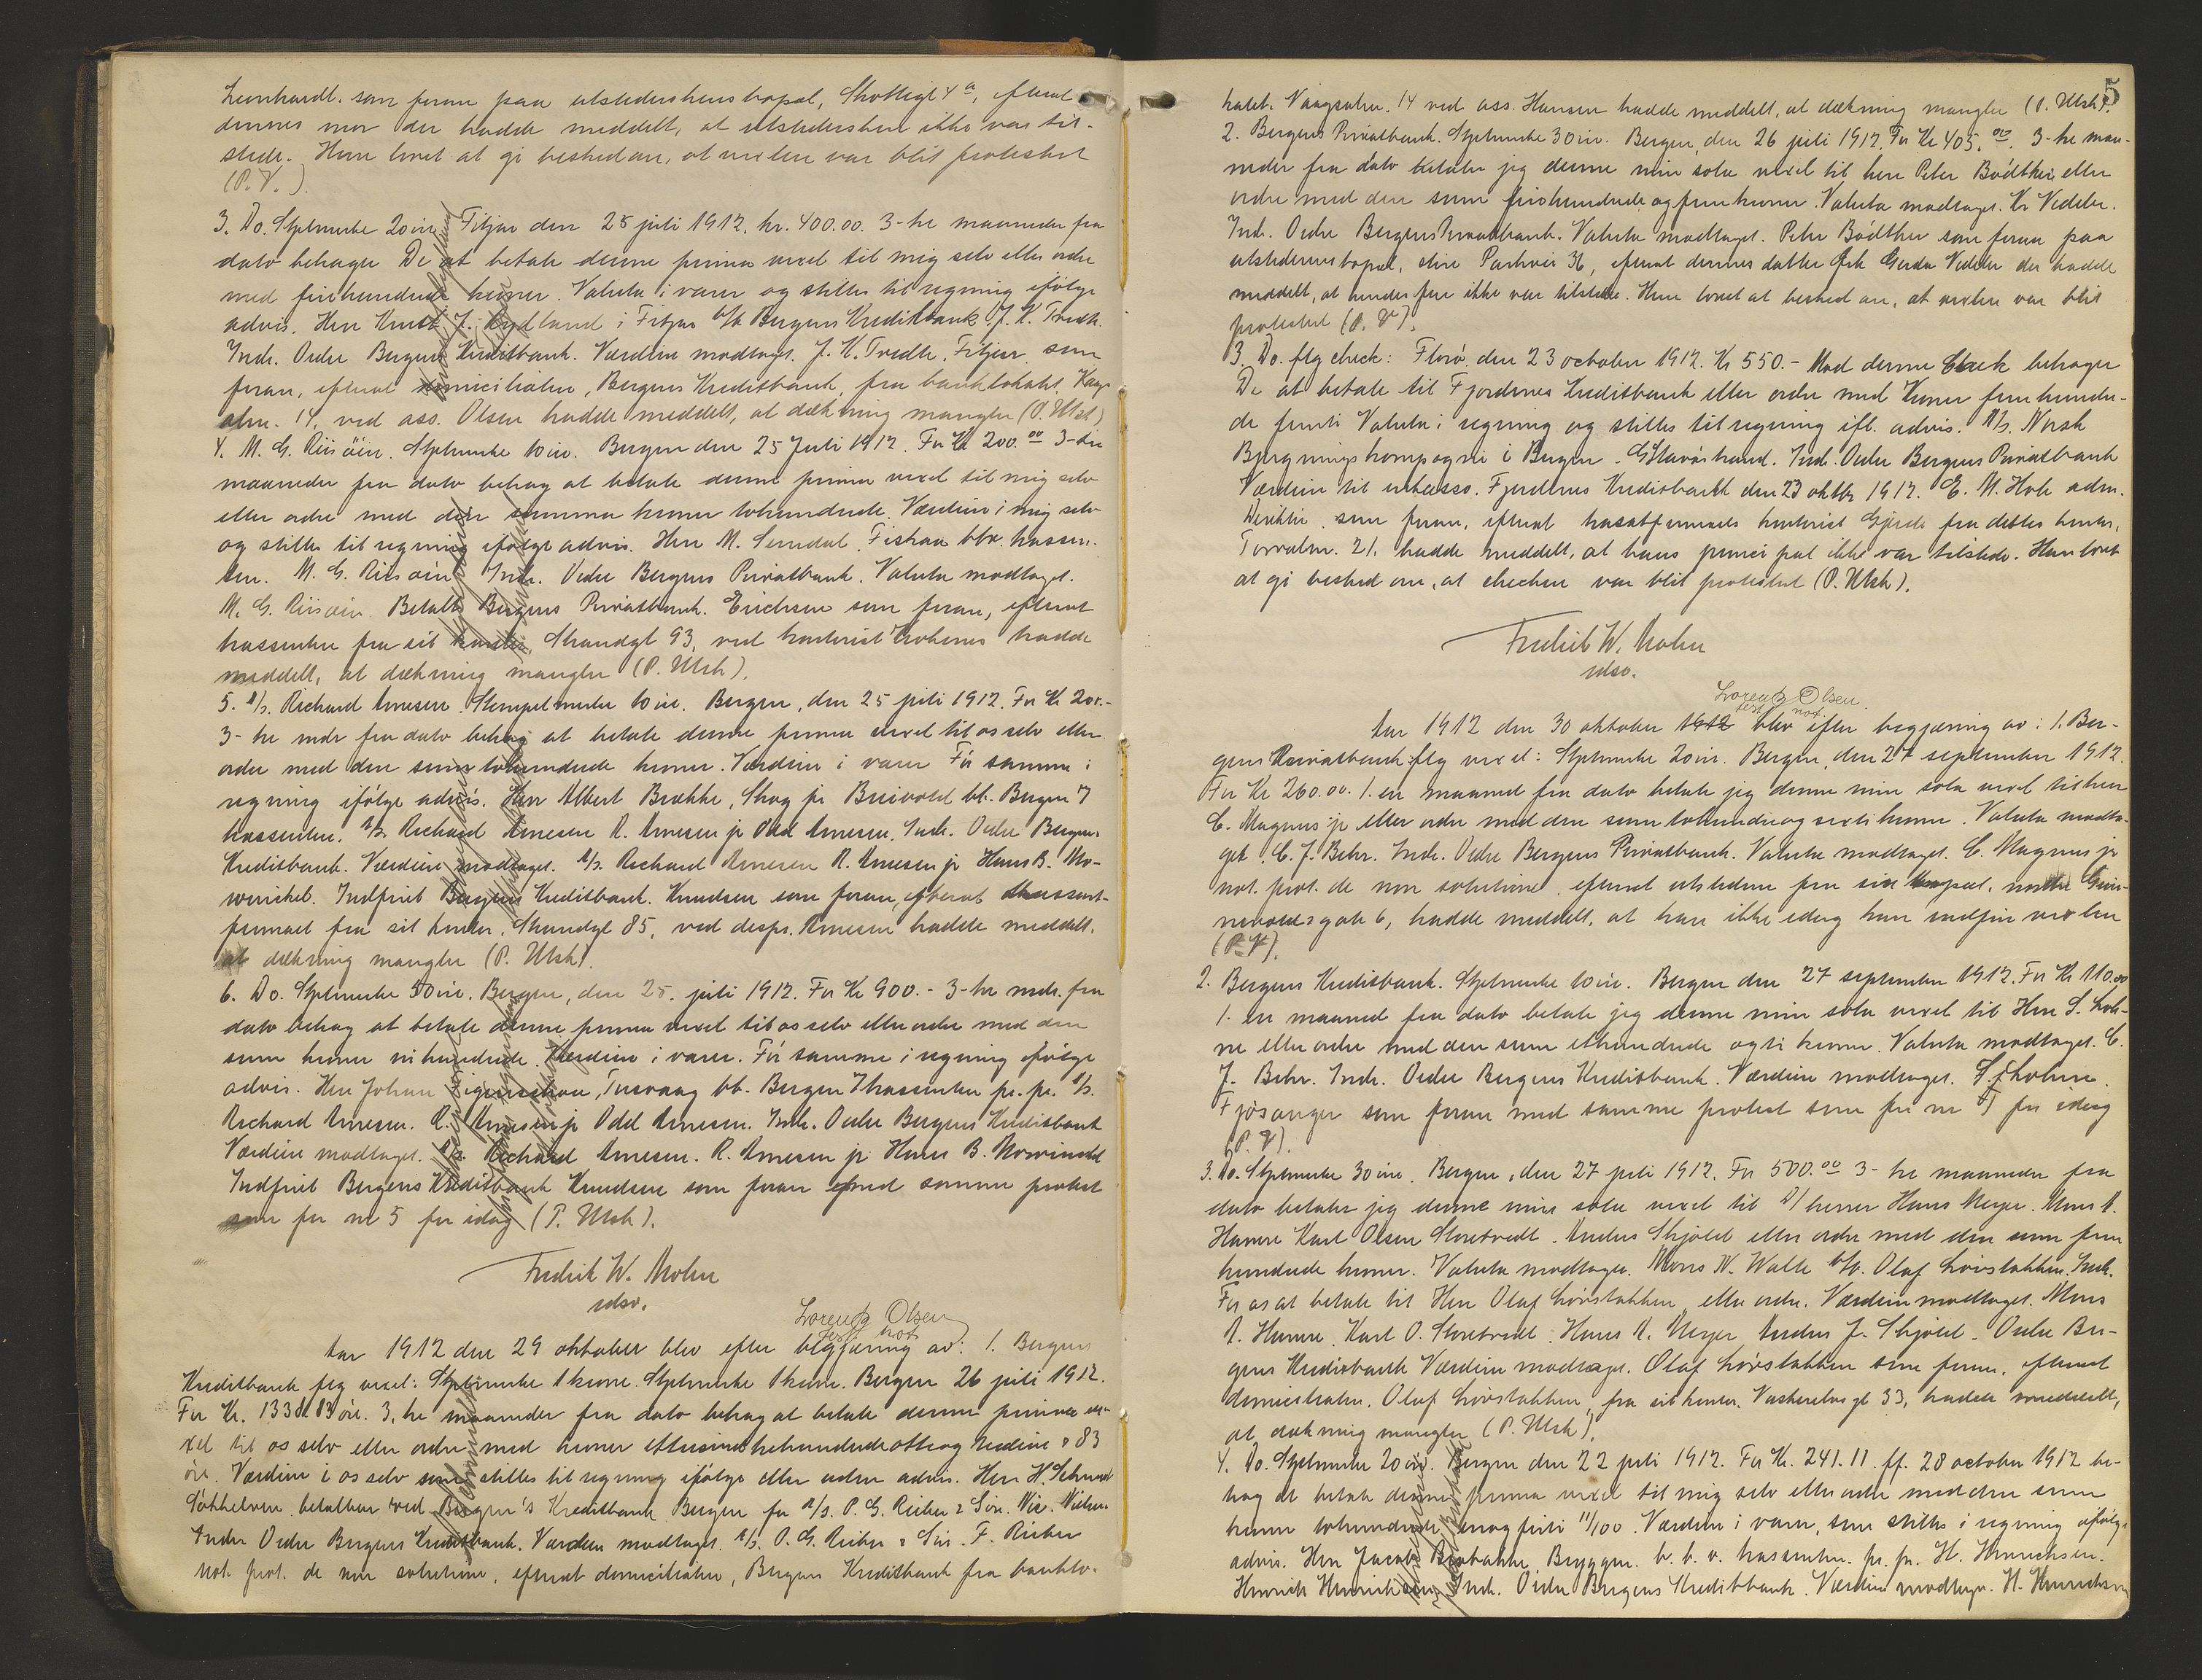 Leonhardt. som foran paa utstederskens bopæl, Skottegt 4ª, efterat
dennes mor der hadde meddelt, at utstedersken ikke var til-
stede. Hun lovet at gi besked om, at vexlen var blit protestert
(P.V.).
3. Do. Stpelmerke 20 øre Fitjar den 25 juli 1912. kr. 400.00. 3-tre maaneder fra
dato behager De at betale denne prima vexel til mig selv eller ordre
med firehundrede kroner. Valuta i varer og stilles til regning ifølge
advis. Herr Knut J. Rydland i Fitjar b/b Bergens Kreditbank. J. K. Tvedt.
Indr. Ordre Bergens Kreditbank. Værdien modtaget. J. K. Tvedte, Fitjar som
foran, efterat domiciliaten, Bergens Kreditbank, fra banklokalet Vaags
alm. 14, ved ass. Olsen hadde meddelt, at dækning mangler (P. Utsk)
4. M. G. Riisøen. Stpelmerke 10 øre. Bergen den 25 Juli 1912. For Kr 200.00 3-tre
maaneder fra dato behag at betale denne prima vexel til mig selv
eller ordre med den summa kroner tohundrede. Værdien i mig selv
og stilles til regning ifølge advis. Herr M. Semdal, Fiskaa bbr. kassen.
ten. M. G. Riisøen Indr. Ordre Bergens Privatbank. Valuta modtaget.
M. G. Riisøen. Betalt Bergens Privatbank. Erichsen som foran, efterat
trassenten fra sit kontor, Strandgt 93, ved kontorist hadde
meddelt, at dækning mangler (P. Utsk).
5. A/s. Richard Arnesen. Stempelmerke 10 øre. Bergen, den 25 juli 1912. For Kr 200.-
3-tre mdr fra dato behag at betale denne prima vexel til os selv eller
ordre med den sum tohundrede kroner. Værdien i varer Før samme i
regning ifølge advis. Herr Albert Brække, Skog pr Breivold bb. Bergen
trassenten. A/s Richard Arnesen R. Arnesen jr Odd Arnesen. Indr. Ordre Bergens
Kreditbank. Værdien modtaget. A/s. Richard Arnesen R. Arnesen jr Hans B. Mo-
winckel. Indfriet Bergens Kreditbank. Knudsen som foran, efterat trassent-
firmaet fra sit kontor, Strandgt 85, ved disp. Arnesen hadde meddelt,
at dækning mangler (P. Utsk).
6. Do. Stpelmerke 50 øre. Bergen, den 25. juli 1912. For Kr 900.- 3-tre mdr. fra
dato behag at betale denne prima vexel til os selv eller ordre med den
sum kroner nihundrede. Værdien i varer. Før samme i regning ifølge
advis. Herr Johan bb. Bergen Trassenten pr. pr. A/s.
Richard Arnesen. R. Arnesen jr Odd Arnesen. Indr. Ordre Bergens Kreditbank
Værdien modtaget. A/s. Richard Arnesen. R. Arnesen jr Hans B. Mowinckel
Indfriet Bergens Kreditbank Knudsen som foran med samme protest
som for nr 5 for idag (P. Utsk).
Fredrik W. Mohn
edsv.
Lorentz Olsen
test not
Aar 1912 den 29 oktober blev efter begjæring av: 1. Bergens
Kreditbank flg vexel: Stpelmerke 1 krone. Stpelmerke 1 krone. Bergen 26 juli 1912.
For Kr. 1338.83 øre. 3, tre maaneder fra dato behag at betale denne prima ve-
xel til os selv eller ordre med kroner ettusindtrehundredeotteogtredive & 83
øre. Værdien i os selv som stilles til regning ifølge eller uden advis. Herr H.
betalbar ved Bergen's Kreditbank Bergen for A/s. P. G. Rieber & Søn.
Indr Ordre Bergens Kreditbank. Værdien modtaget. A/s. P. G. Rieber & Søn. F. Rieber
not. prot. de non solutione, efterat domiciliaten, Bergens Kreditbank fra banklo-
5
kalet. Vaagsalm. 14 ved ass. Hansen hadde meddelt, at dækning mangler (P. Utsk).
2. Bergens Privatbank. Stpelmerke 30 øre. Bergen, den 26 juli 1912. For Kr 405.00. 3-tre maa-
neder fra dato betaler jeg denne min sola vexel til herr Peter Bødtker eller
ordre med den sum firehundrede og fem kroner. Valuta modtaget. Kr Vedeler.
Indr. Ordre Bergens Privatbank. Valuta modtaget. Peter Bødtker som foran paa
utstederens bopæl, øvre Parkvei 36, efterat dennes datter frk Gerda Vedeler der hadde
meddelt, at hendes far ikke var tilstede. Hun lovet at besked om, at vexlen var blit
protestert (P. V).
3. Do. flg check: Florø, den 23 october 1912. Kr 550.- Mod denne Check behager
De at betale til Fjordenes Kreditbank eller ordre med Kroner femhundre-
de femti Valuta i regning og stilles til regning ifl. advis. A/s. Norsk
Bjergningskompagni i Bergen. Indr. Ordre Bergens Privatbank
Værdien til inkasso. Fjordenes Kreditbank den 23 oktbr 1912. E. M. Hole adm.
Direktør. som foran, efterat trasatfirmaets kontorist Gjerde fra dettes kontor,
Torvalm. 21. hadde meddelt, at hans principal ikke var tilstede. Han lovet
at gi besked om, at checken var blit protestert (P. Utsk).
Fredrik W. Mohn
edsv.
Lorentz Olsen.
test not
Aar 1912 den 30 oktober 1912 blev efter begjæring av: 1. Ber-
gens Privatbank flg vexel: Stpelmerke 20 øre. Bergen, den 27 september 1912.
For Kr 260.00. 1. en maaned fra dato betale jeg denne min sola vexel til herr
C. Magnus jr eller ordre med den sum tohundredeogsexti kroner. Valuta modta-
get. C. J. Behr. Indr. Ordre Bergens Privatbank. Valuta modtaget. C. Magnus jr
not. prot. de non solutione, efterat utstederen fra sin bopæl, nordre
gate 6, hadde meddelt, at han ikke idag kan indfri vexlen
(P. V).
2. Bergens Kreditbank. Stpelmerke 10 øre. Bergen den 27 september 1912. For Kr. 110.00
1. en maaned fra dato betale jeg denne min sola vexel til Herr S. Loh-
ne eller ordre med den sum ethundrede og ti kroner. Valuta modtaget. C.
J. Behr. Indr. Ordre Bergens Kreditbank. Værdien modtaget. S. Lohne.
Fjøsanger som foran med samme protest som for nr 1 for idag
(P. V).
3. Do. Stpelmerke 30 øre. Bergen, den 27 juli 1912. For 500.00 3-tre maaneder fra
dato betaler jeg denne min sola vexel til d/herrer Hans Meyer. Mons A.
Hamre Karl Olsen Storetvedt. Anders Skjold eller ordre med den sum fem
hundrede kroner. Valuta modtaget. Mons N. Walle b/b. Olaf Løvstakken. Indr.
For os at betale til Herr Olaf Løvstakken eller ordre. Værdien modtaget. Mons
A. Hamre. Karl O. Storetvedt. Hans A. Meyer Anders J. Skjold. Ordre Ber-
gens Kreditbank Værdien modtaget. Olaf Løvstakken som foran, efterat
domiciliaten, Olaf Løvstakken, fra sit kontor, Vaskerelvsgt 33, hadde meddelt,
at dækning mangler (P. Utsk).
4. Do. Stpelmerke 20 øre. Bergen den 22 juli 1912. For Kr. 241.11. pf. 28 october 1912 be-
hag at betale denne prima vexel til mig selv eller ordre med den sum
kroner tohundrede enogfirti 11/100. Værdien i varer, som stilles i regning ifølge
advis. Herr Jacob Brobakke, Bryggen. b. b. v. trassenten. pr. pr. H. Hinrichsen.
Hinrich Hinrichsen Indr. Ordre Bergens Kreditbank. Værdien modtaget. H. Hinrichsen